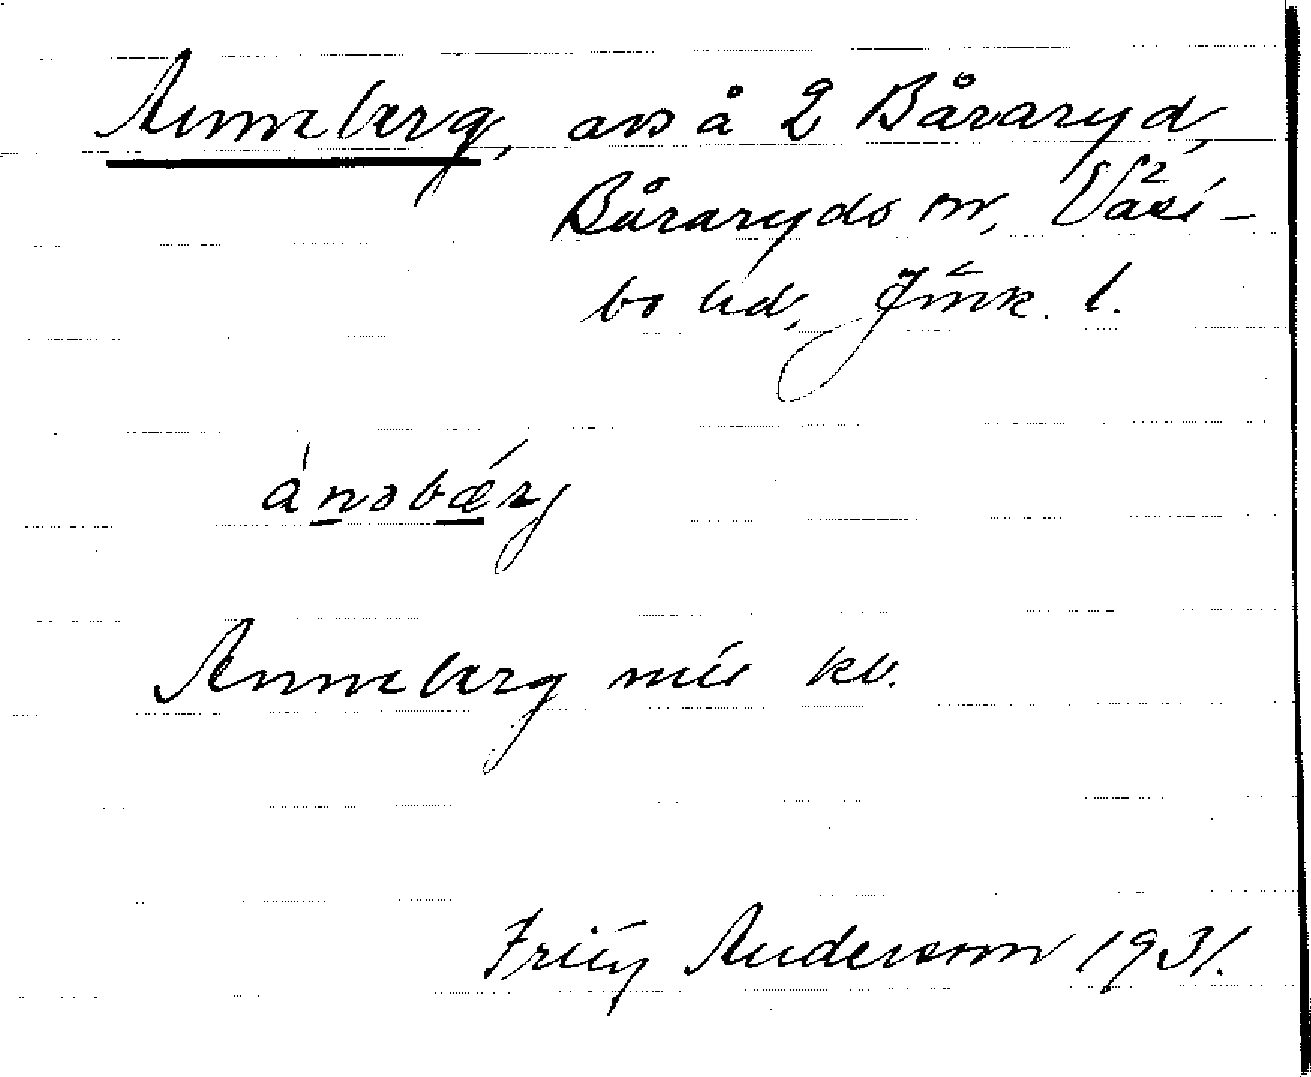 Anneberg, avs å 2 Båraryd,
Båraryds sn, Västbo hd, Jönk. l.
ánəbǽrj
Anneberg mtl kv.
Fritz Anderson 1931.